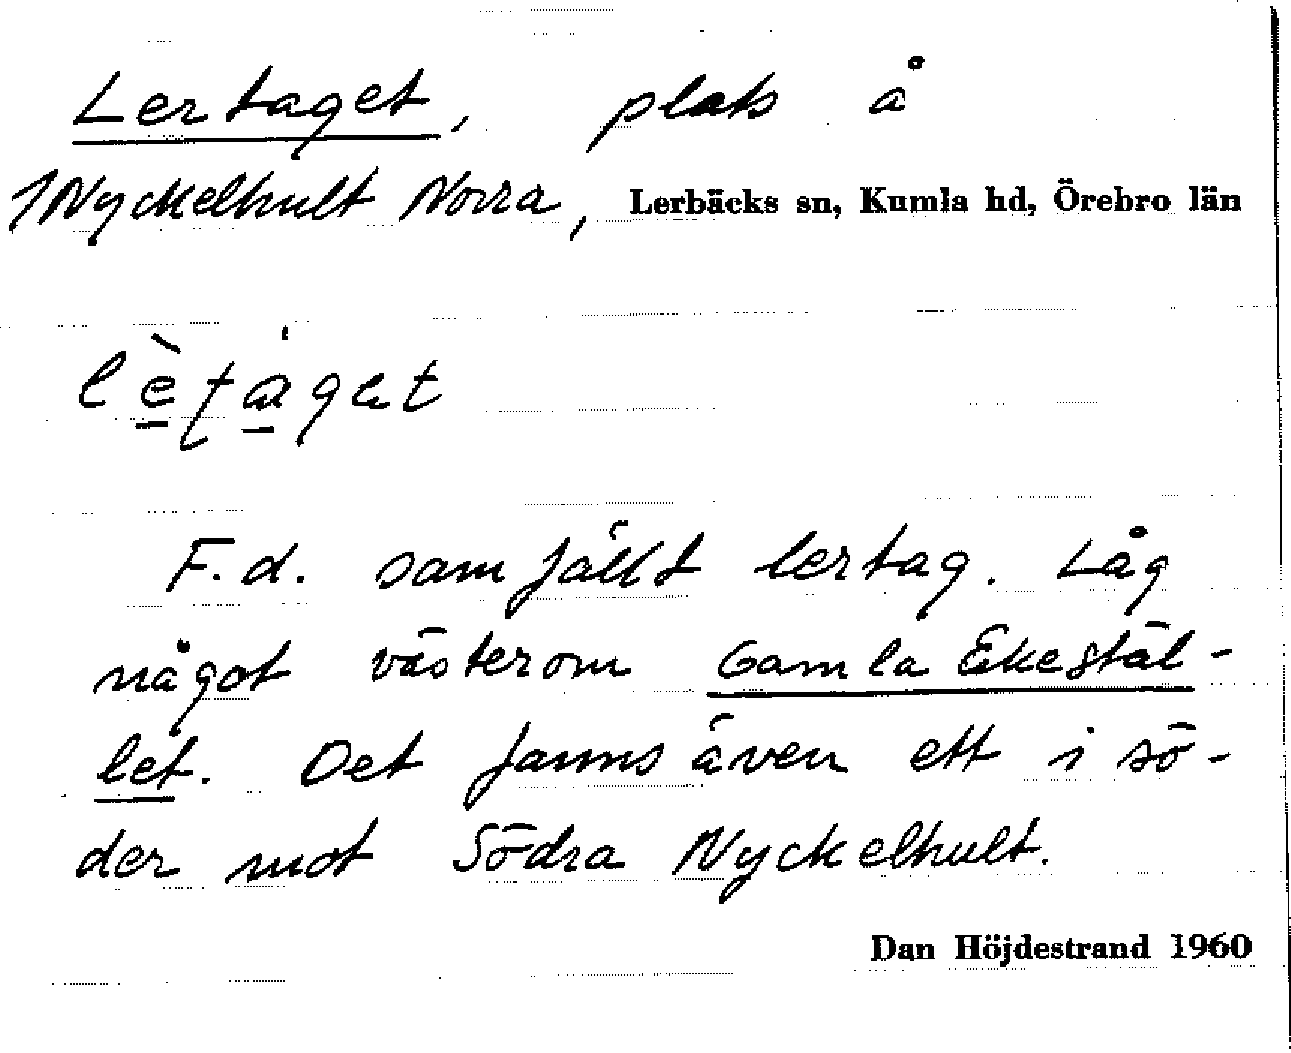 Lertaget, plats å
1 Nyckelhult Norra, Lerbäcks sn, Kumla hd, Örebro län
F.d. samfällt lertag. Låg
något västerom Gamla Ekestäl-
let. Det fanns även ett i sö-
der mot Södra Nyckelhult.
Dan Höjdestrand 1960